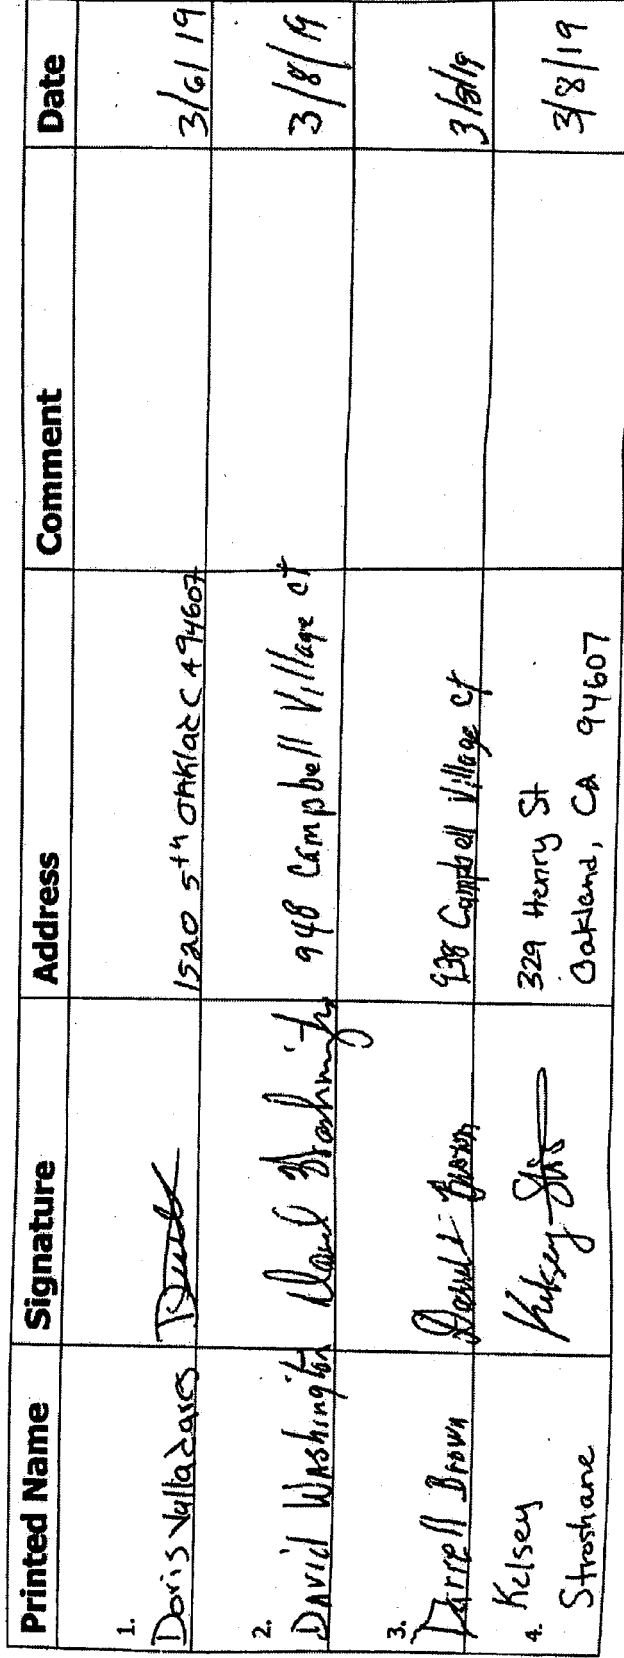 Printed Name Signature Address Comment Date
1. Doris Valladares 1520 5th Oaklad CA 94607 3/6/19
2. David Washington David Washington 948 Campbell Village ct 3/8/19
3. Darrell Brown Darrell Brown 938 Campbell Village ct 3/8/19
4. Kelsey Kelsey 329 Henry St 3/8/19
Stroshane Oakland, CA 94607